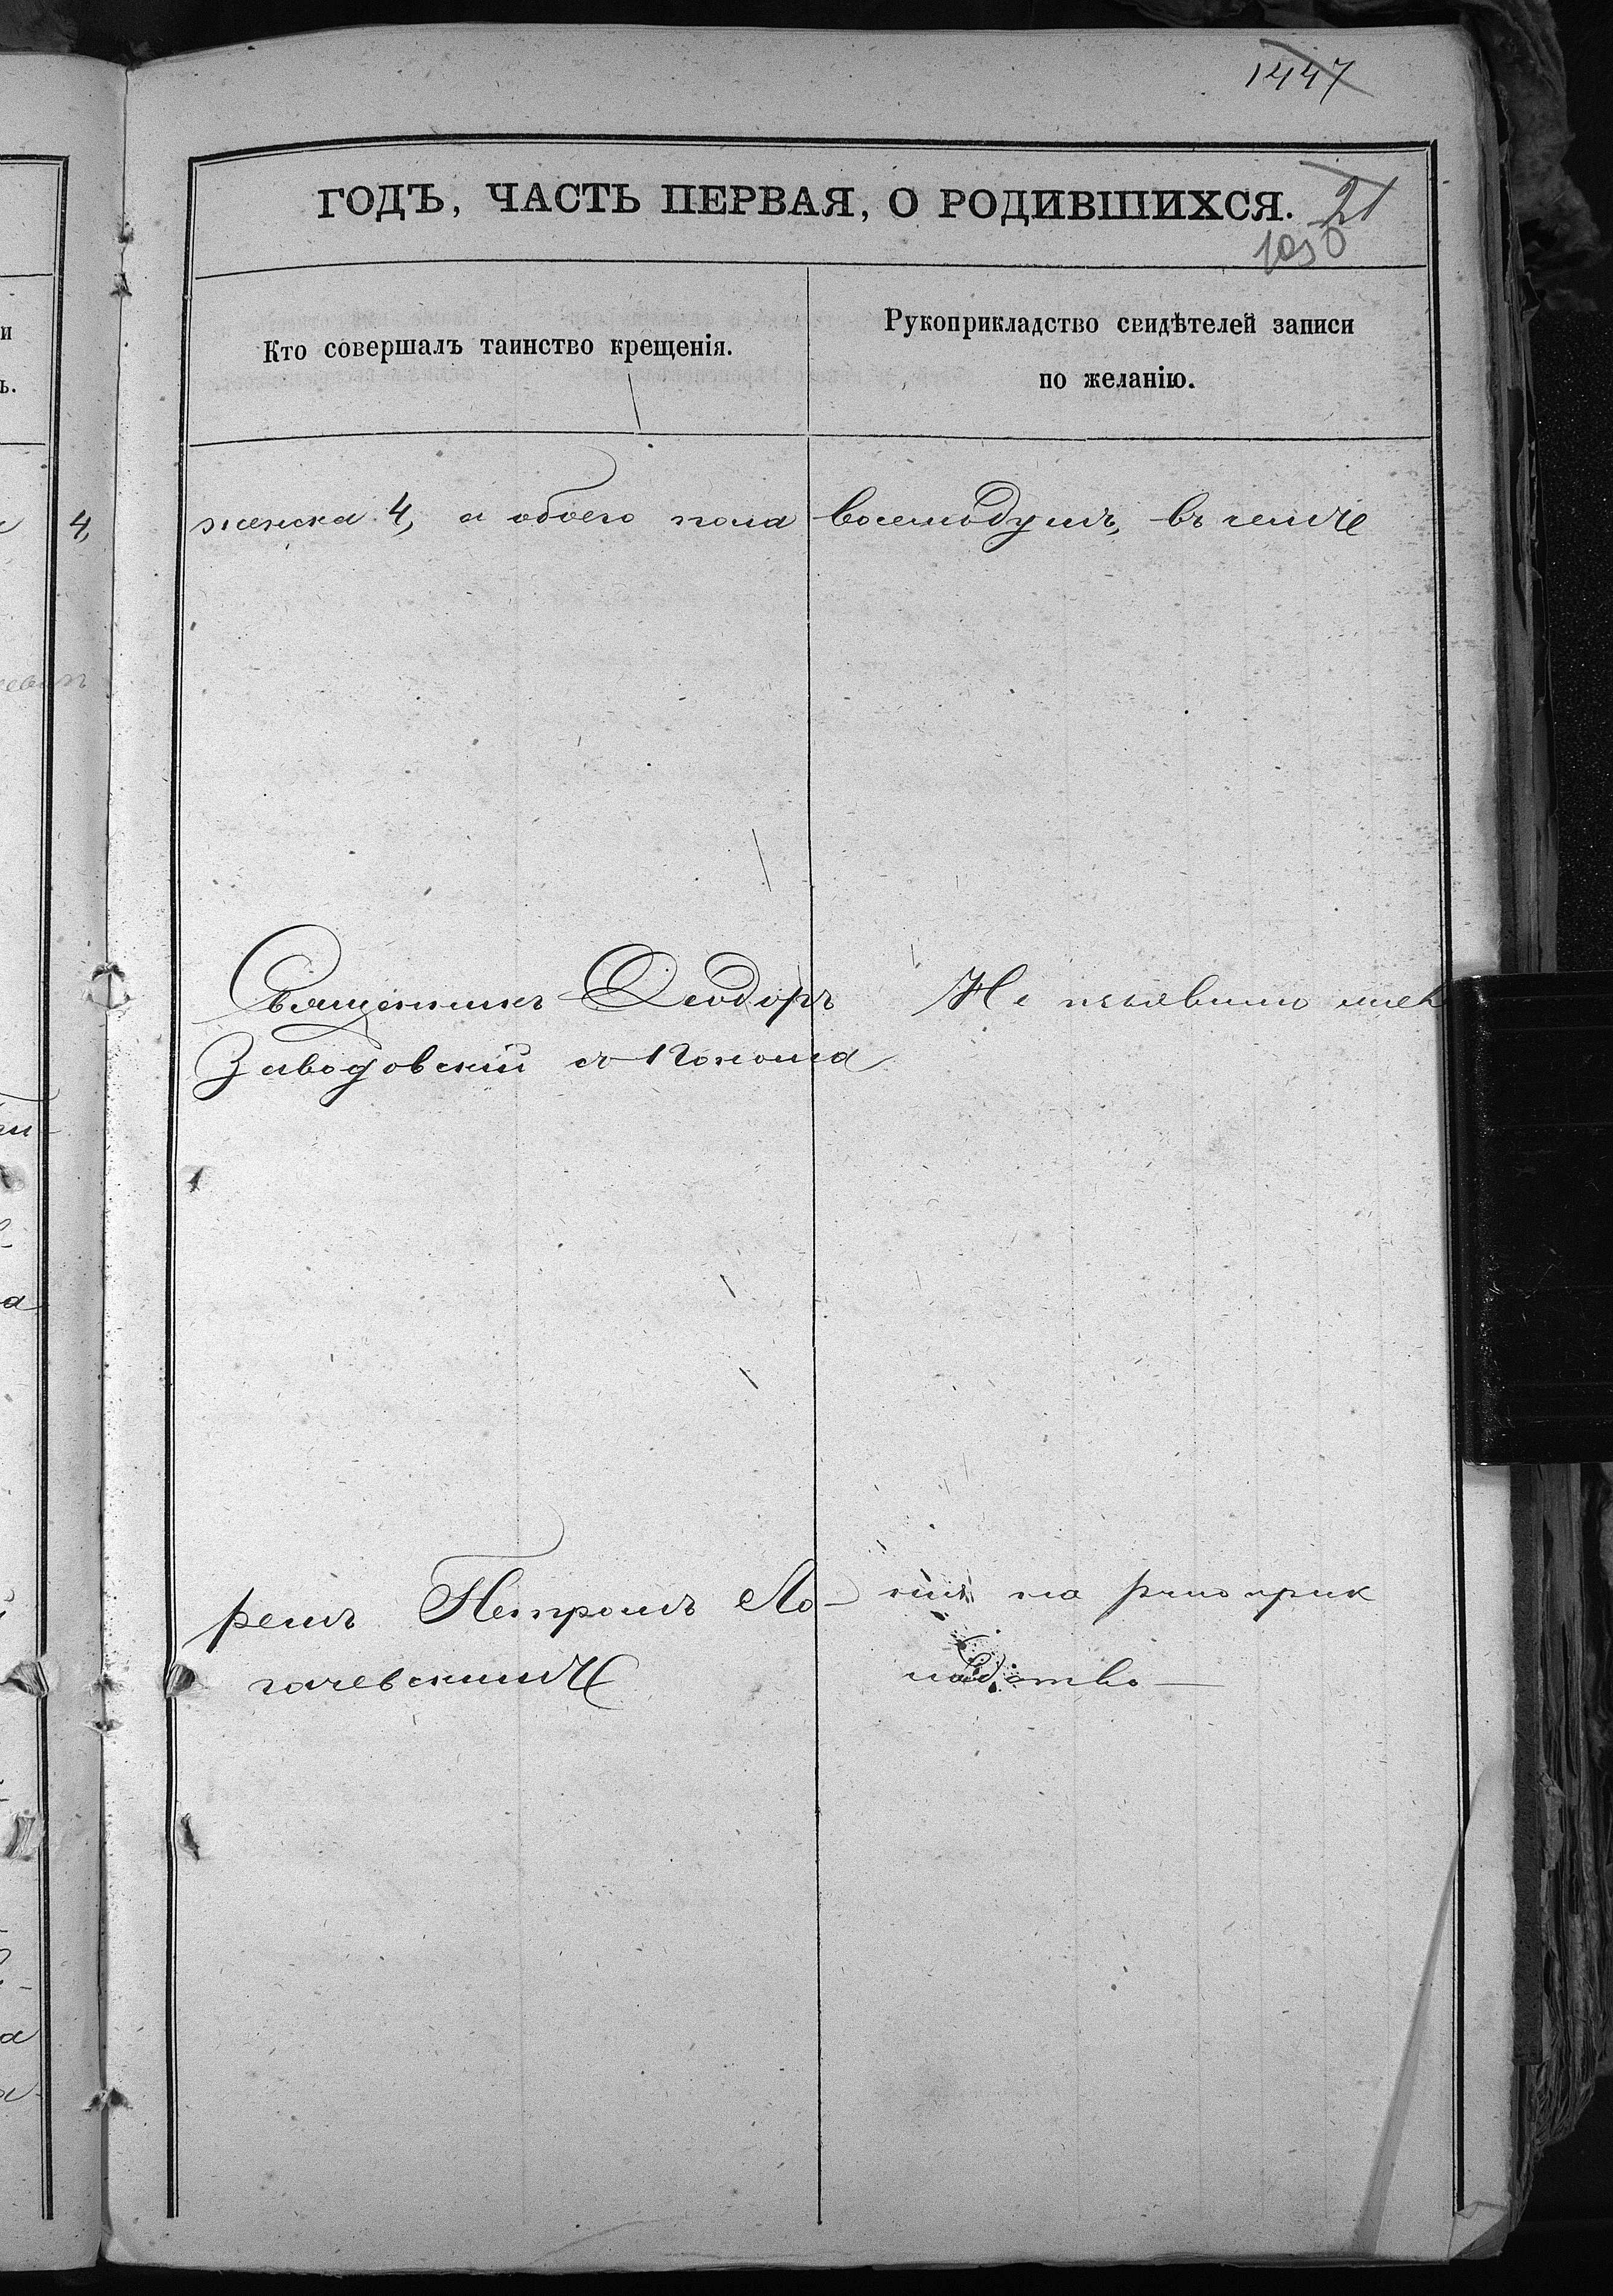 1447
ГОДЪ, ЧАСТЬ ПЕРВАЯ, О РОДИВШИХСЯ.
21
1030
Кто совершалъ таинство крещенія.
Рукоприкладство свидѣтелей записи
по желанію.
4,
женска 4, а обоего пола восемь душъ, въ
Священникъ Ѳеодоръ
Заводовскій съ Понома
ремъ Петромъ Ло-
гачевскимъ
Не изъявило
нія на рукоприк
ладство —